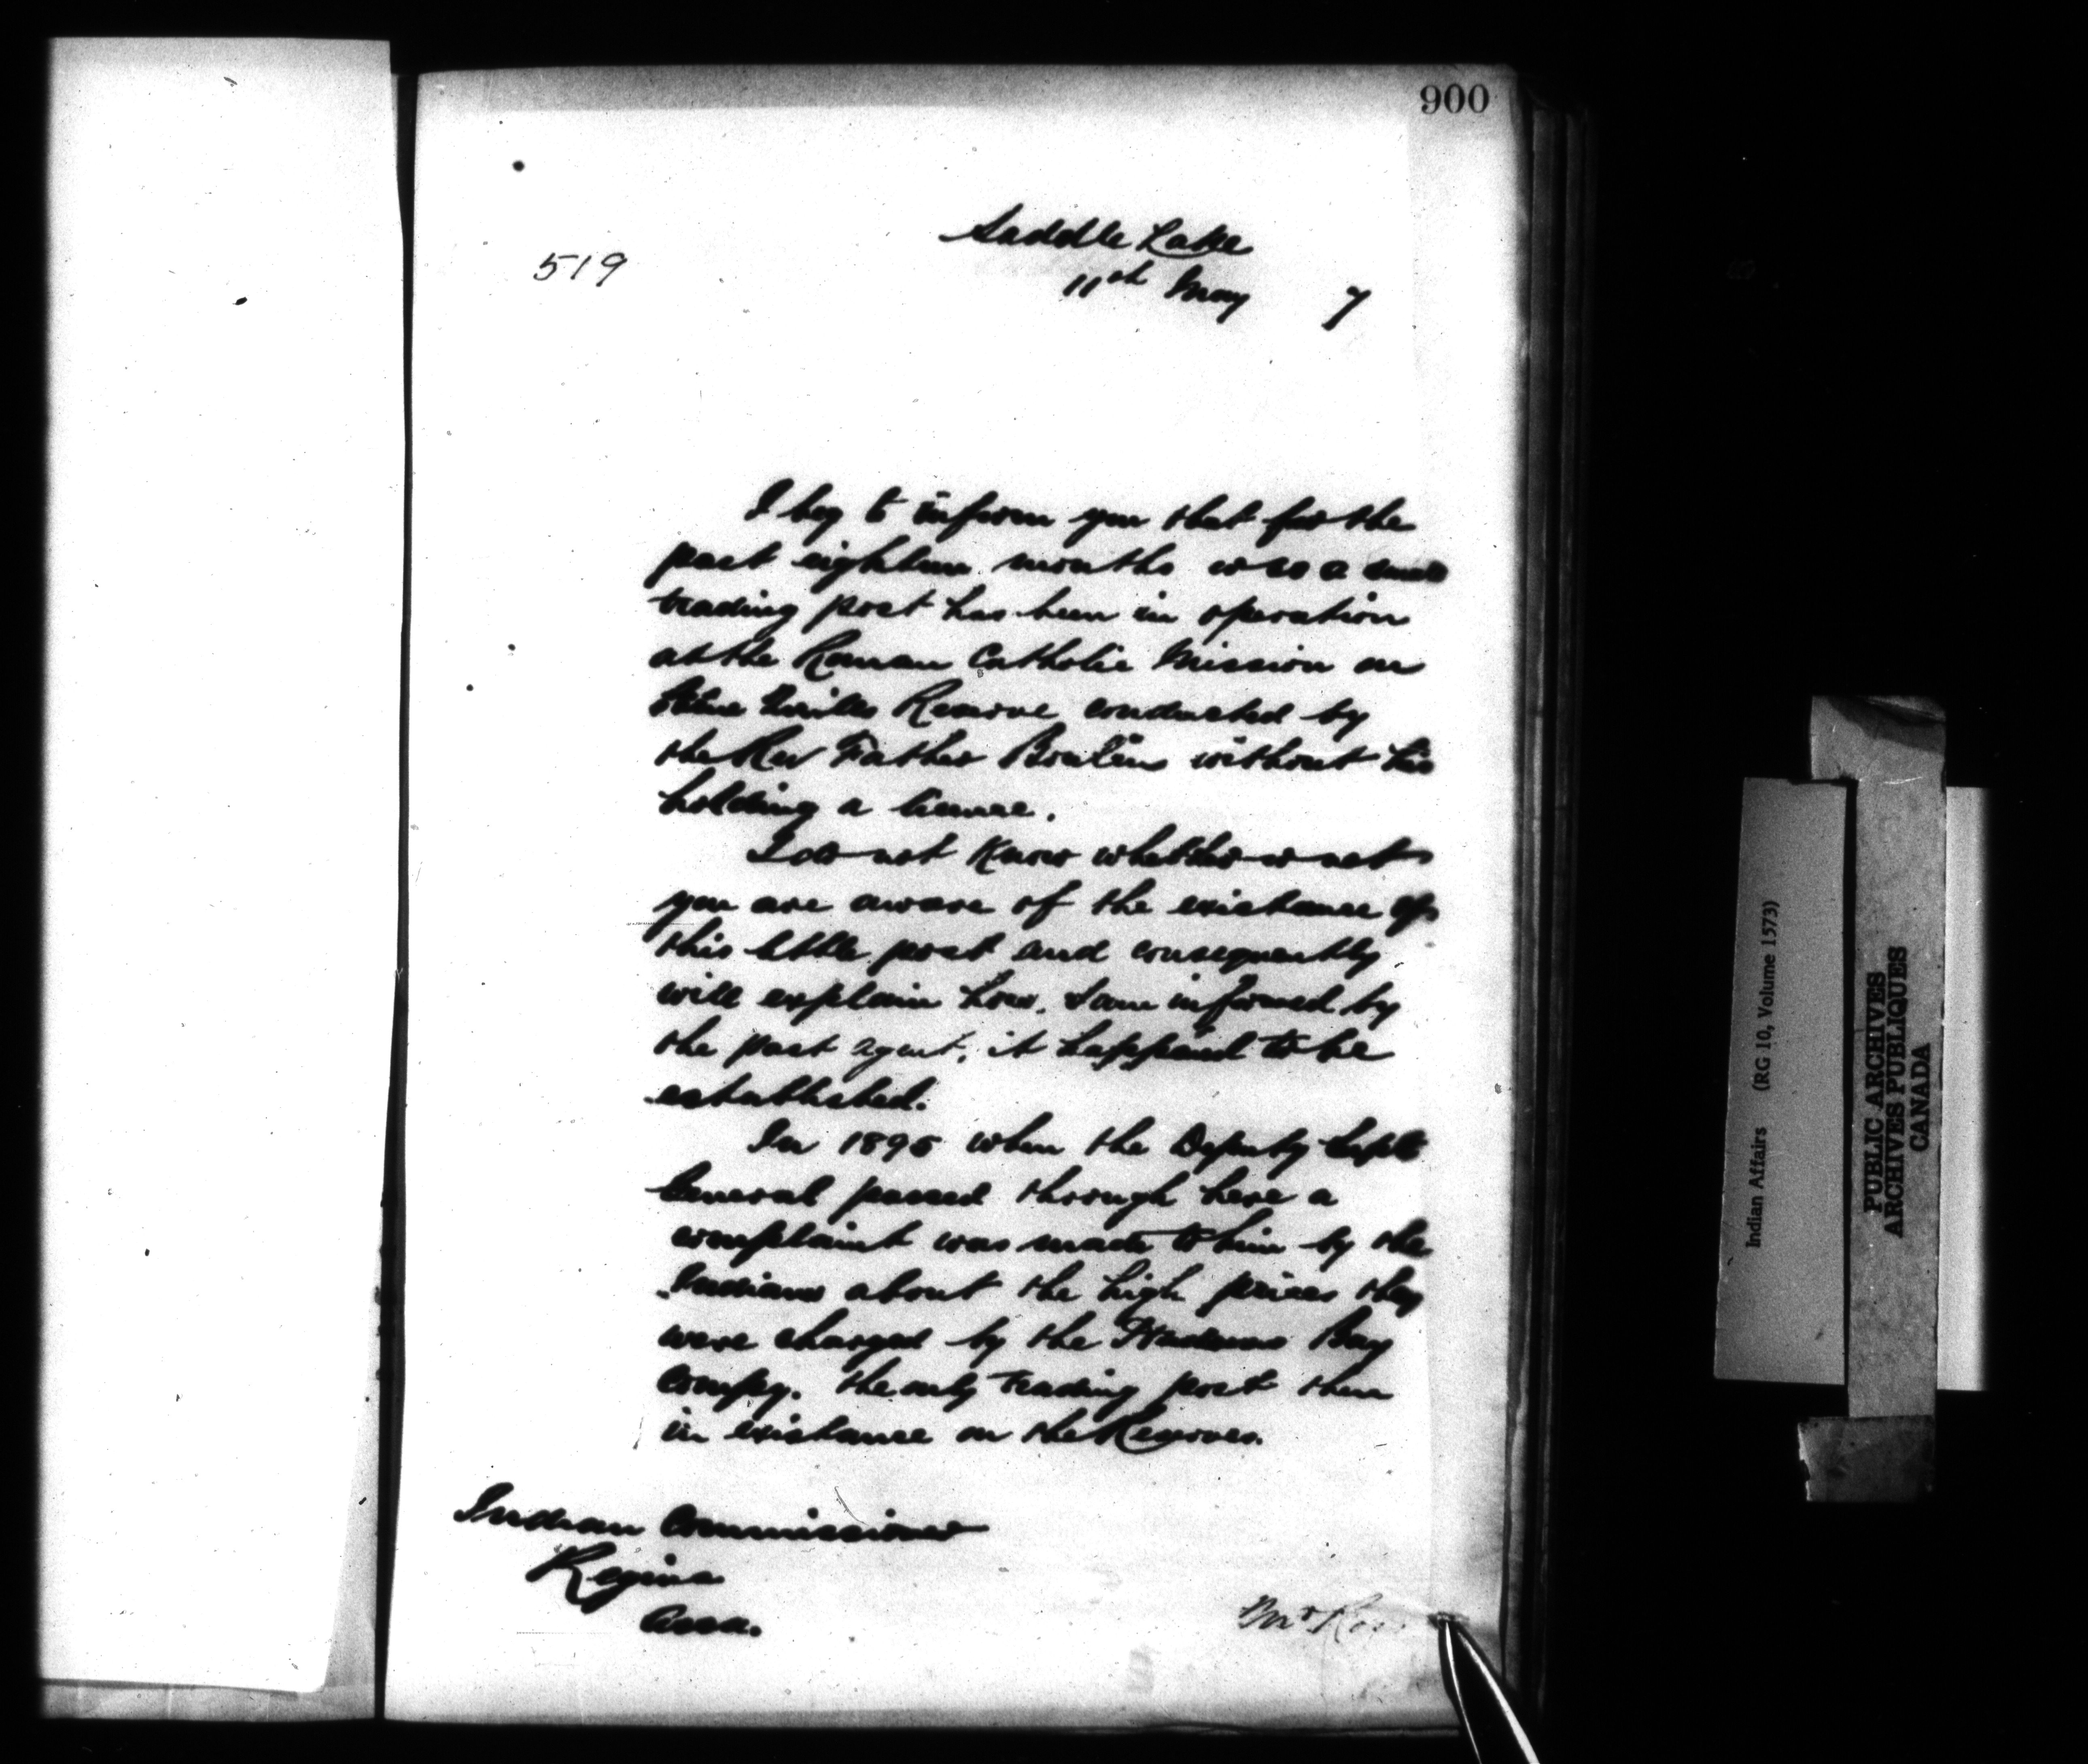 900
519
Saddle Lake
11th May 7
I beg to inform you that for the
past eighteen months or so a small
trading post has been in operation
at the Roman Catholic Mission on
Blue Quills Reserve conducted by
the Rev Father Boulin without his
holding a license.
I do not know whether or not
you are aware of the existance of
this little post and consequently
will explain how, I am informed by
the past agent, it happened to be
established.
In 1895 when the Deputy Supt
General passed through here a
complaint was made to him by the
Indians about the high prices they
were charged by the Hudsons Bay
Compy. the only trading post then
in existance on the Reserves.
Indian Commissioner
Regina
Assa.
Mr
Indian Affairs (RG 10, Volume 1573)
PUBLIC ARCHIVES
ARCHIVES PUBLIQUES
CANADA